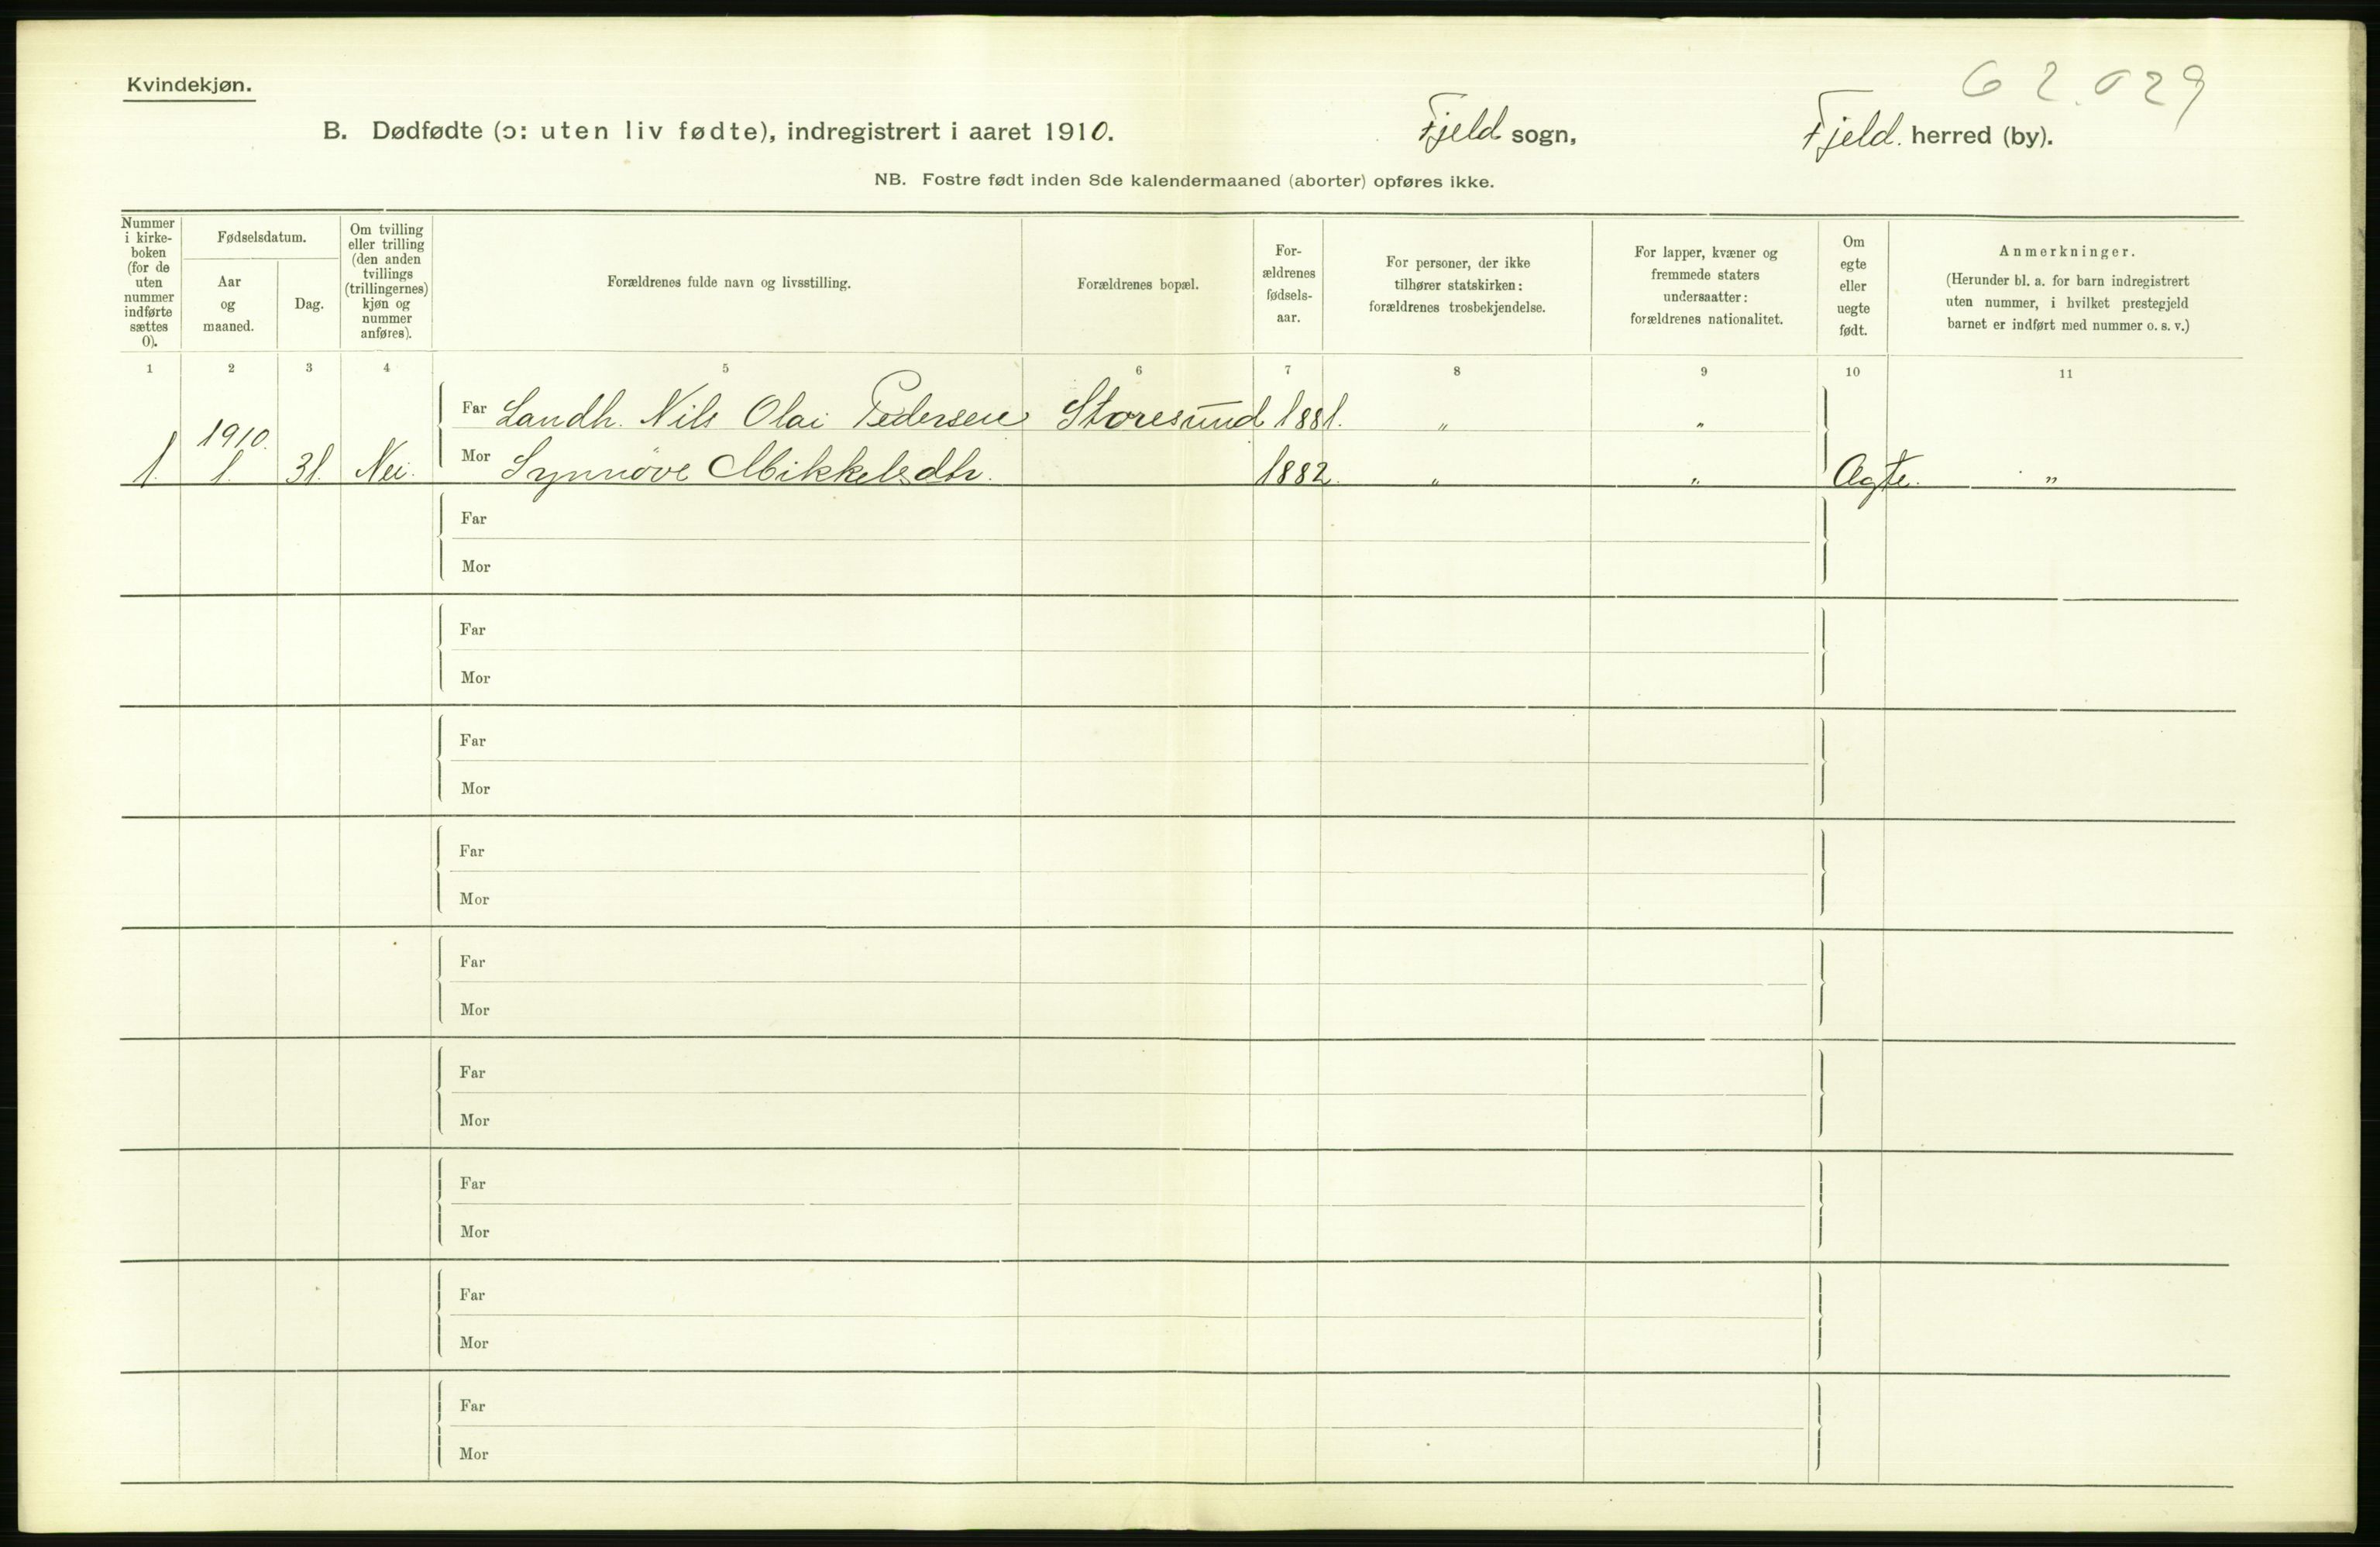 Kvindekjøn.
62.029
B. Dødfødte (ɔ: uten liv fødte), indregistrert i aaret 1910. Fjeld sogn, Fjeld. herred (by).
NB. Fostre født inden 8de kalendermaaned (aborter) opføres ikke.
Nummer
i kirke-
boken
(for de
uten
nummer
indførte
sættes
0).
Fødselsdatum.
Aar
og
maaned.
Dag.
Om tvilling
eller trilling
(den anden
tvillings
(trillingernes)
kjøn og
nummer
anføres).
Forældrenes fulde navn og livsstilling.
Forældrenes bopæl.
For-
ældrenes
fødsels-
aar.
For personer, der ikke
tilhører statskirken:
forældrenes trosbekjendelse.
For lapper, kvæner og
fremmede staters
undersaatter:
forældrenes nationalitet.
Om
egte
eller
uegte
født.
Anmerkninger.
(Herunder bl. a. for barn indregistrert
uten nummer, i hvilket prestegjeld
barnet er indført med nummer o. s. v.)
1 2 3 4 5 6 7 8 9 10 11
Far Landh. Nils Olai Pedersen Storesund 1881. " "
1910.
1. 1. 31. Nei. Mor Synnöve Mikkelsdtr. 1882. " " Ægte. "
Far
Mor
Far
Mor
Far
Mor
Far
Mor
Far
Mor
Far
Mor
Far
Mor
Far
Mor
Far
Mor